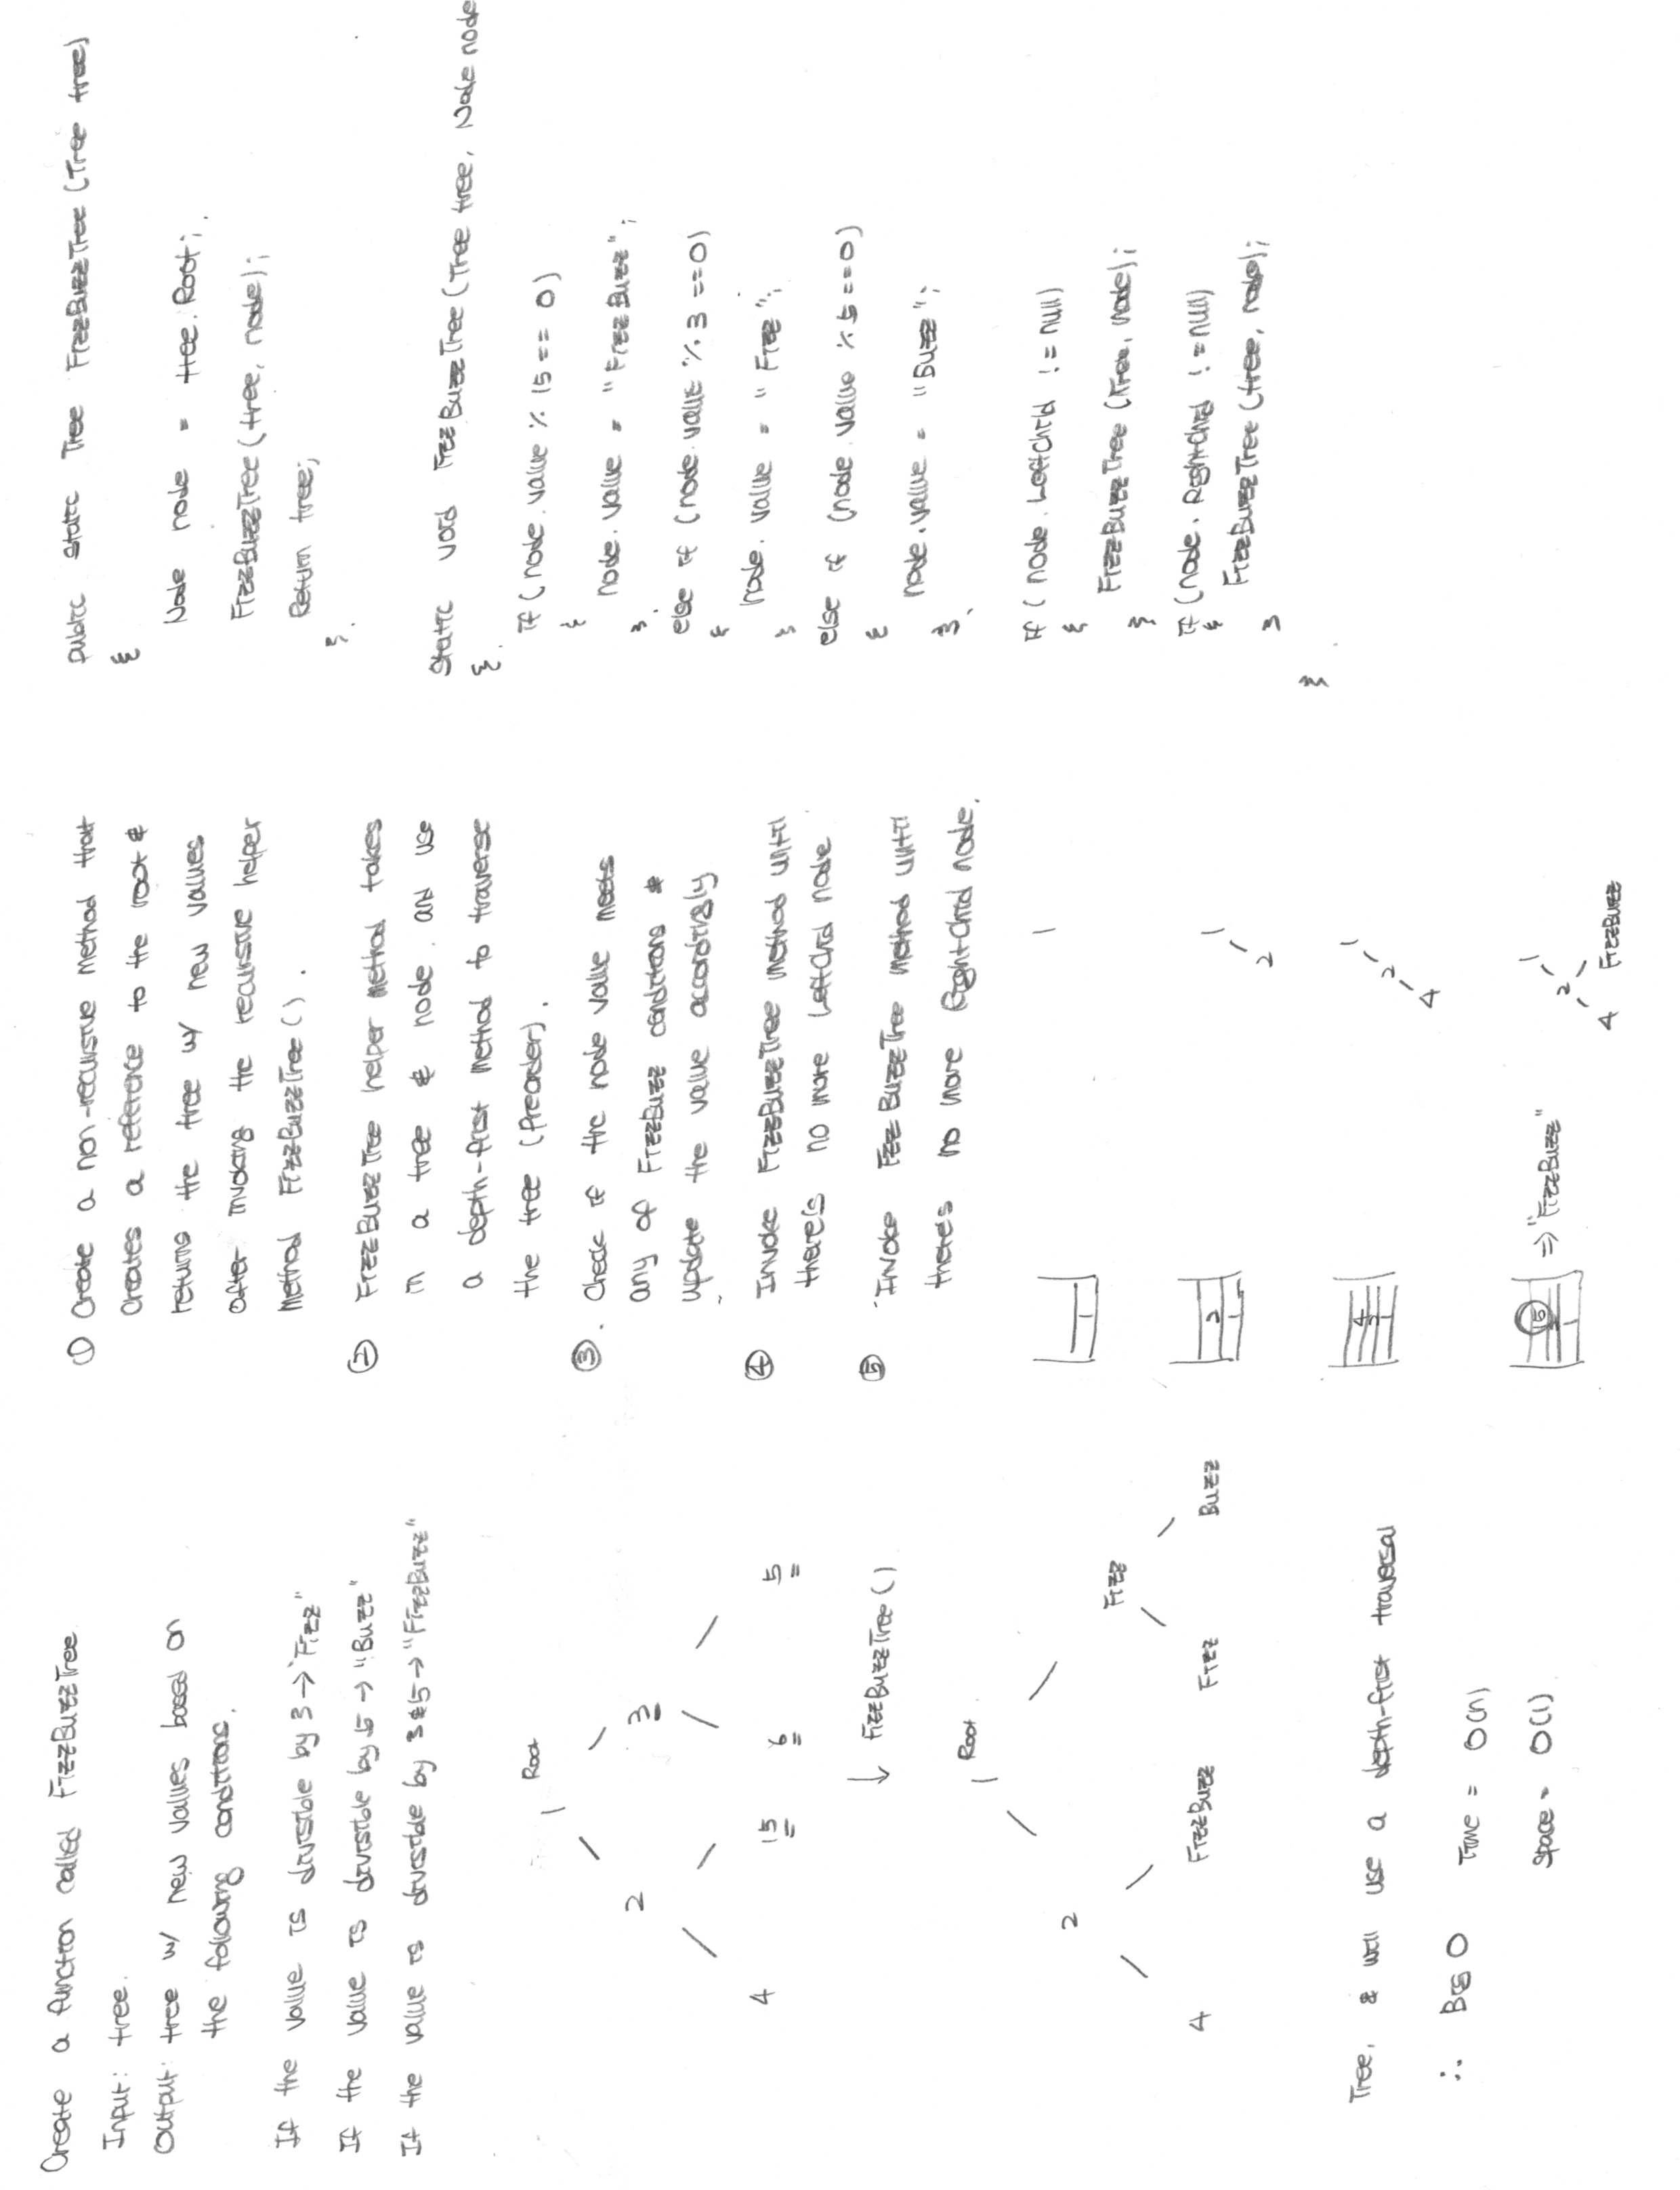 Create a function called FizzBuzzTree
Input: tree.
Output: tree w/ new values based on
the following conditions.
If the value is divisible by 3 → "Fizz"
If the value is divisible by 5 → "Buzz"
If the value is divisible by 3 & 5 → "FizzBuzz"
Root
1
2 3
4 15 6 5
↓ FizzBuzzTree()
Root
1
2
Fizz
4 FizzBuzz Fizz Buzz
Tree, & will use a depth-first traversal
∴ Big O Time = O(n)
Space = O(1)
① Create a non-recursive method that
creates a reference to the root &
returns the tree w/ new values
after invoking the recursive helper
method FizzBuzzTree().
② FizzBuzzTree helper method takes
in a tree & node. and use
a depth-first method to traverse
the tree (Preorder).
③. Check if the node value meets
any of FizzBuzz conditions &
update the value accordingly
④ Invoke FizzBuzzTree method until
there's no more LeftChild node
⑤ Invoke FizzBuzzTree method until
there's no more RightChild node.
1 1
2 1
1 2
4 1
2 2
1 4
15 => "FizzBuzz" 1
2 2
1 4 FizzBuzz
public static Tree FizzBuzzTree (Tree tree)
{
Node node = tree.Root;
FizzBuzzTree (tree, node);
Return tree;
}
static void FizzBuzzTree (Tree tree, Node node
{
if (node.value % 15 == 0)
{
node.value = "FizzBuzz";
}
else if (node.value % 3 == 0)
{
node.value = "Fizz";
}
else if (node.value % 5 == 0)
{
node.value = "Buzz";
}
if (node.LeftChild != null)
{
FizzBuzzTree (Tree, node);
}
if (node.RightChild != null)
{
FizzBuzzTree (tree, node);
}
}